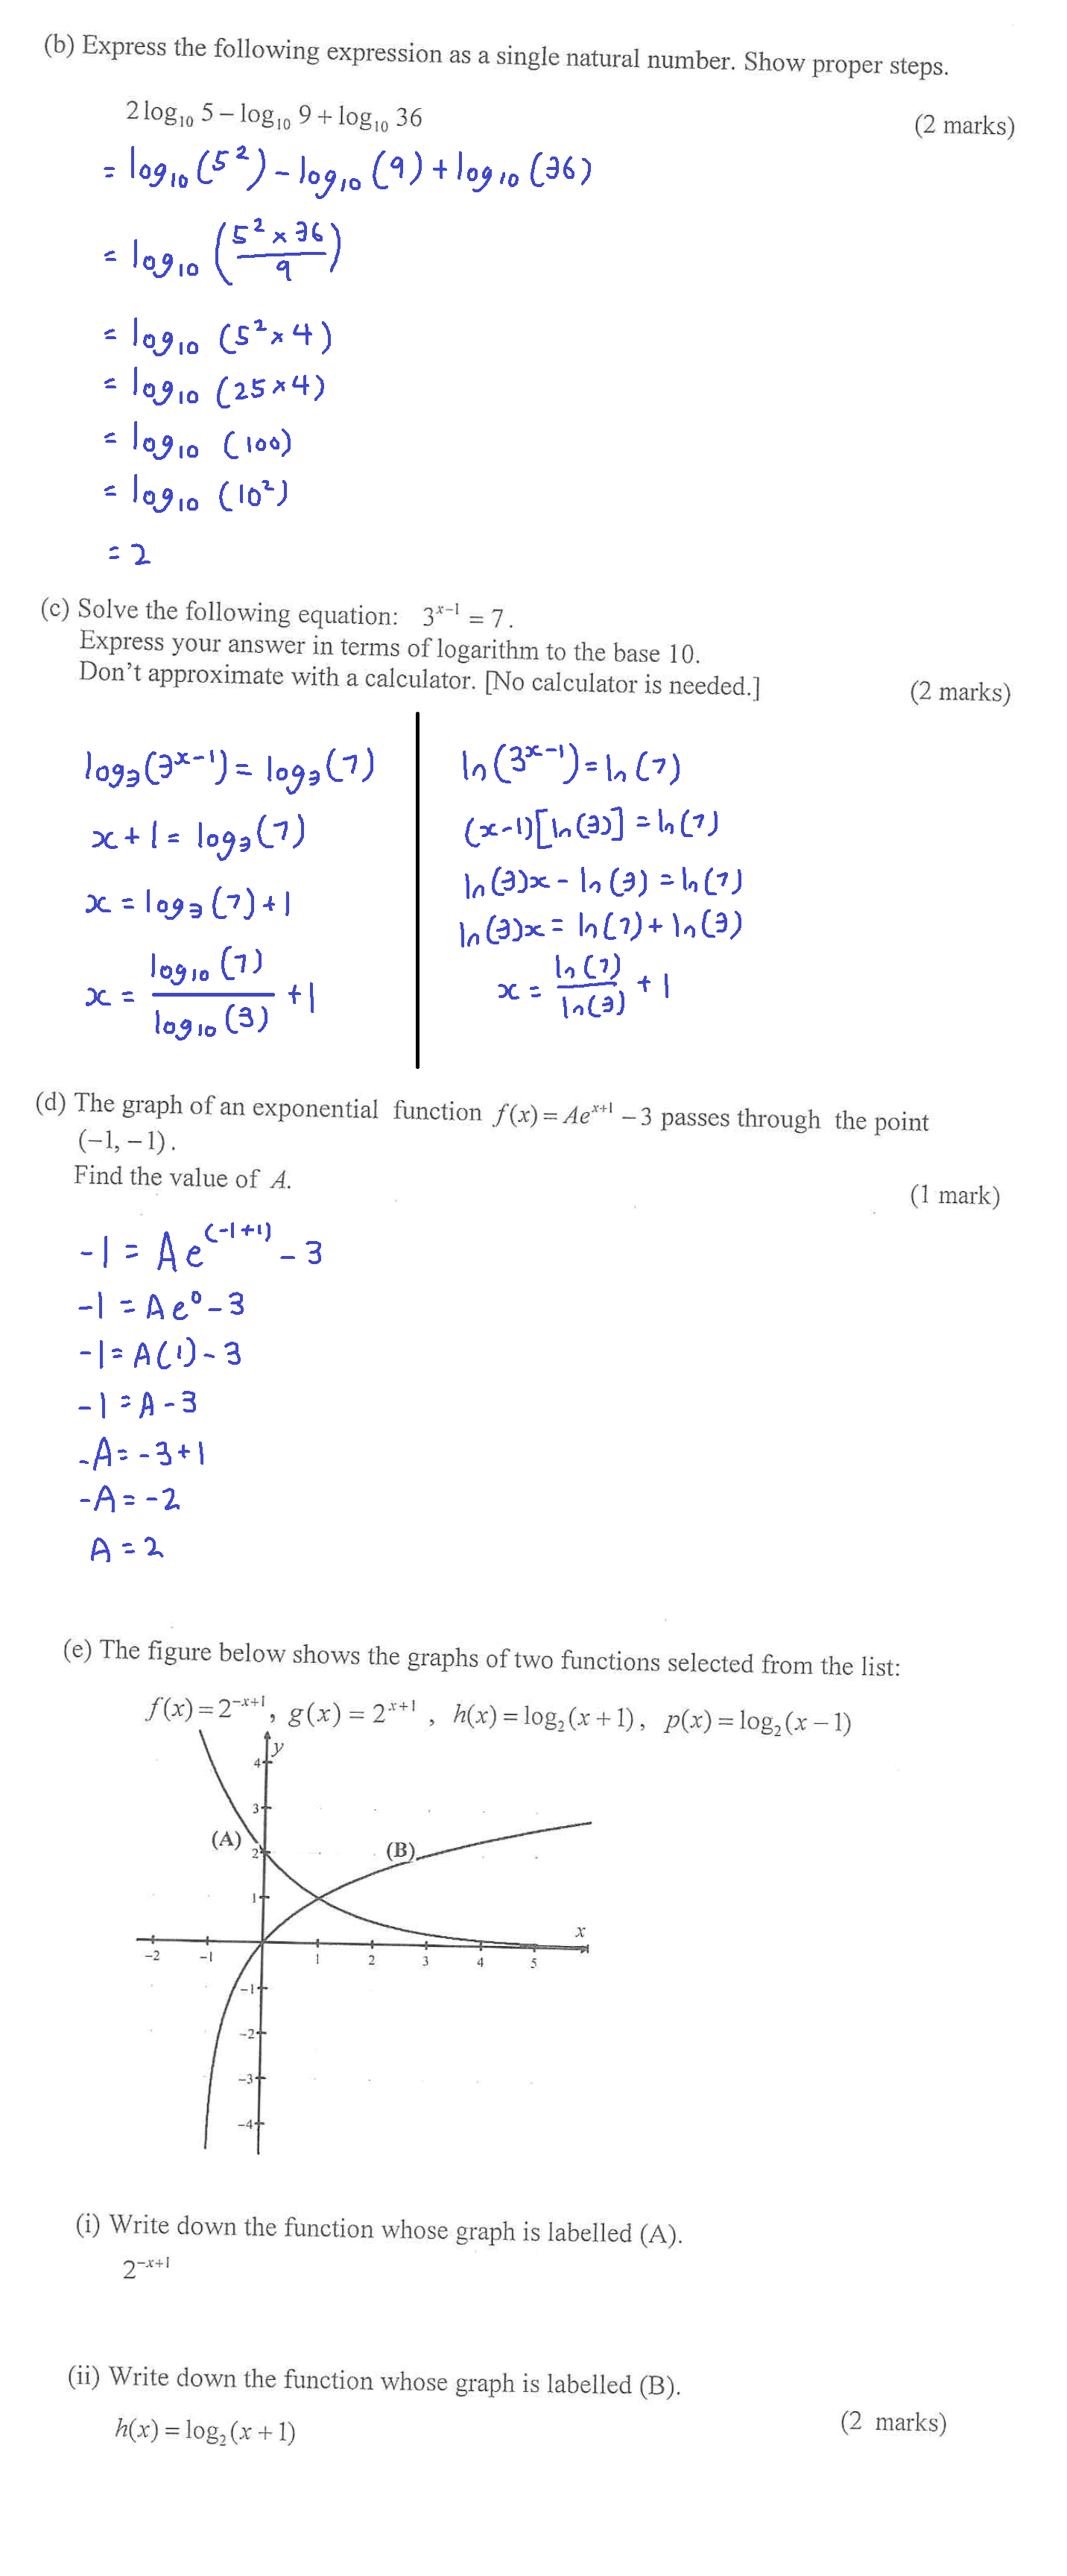 (b) Express the following expression as a single natural number. Show proper steps.
2 log₁₀ 5 – log₁₀ 9 + log₁₀ 36
(2 marks)
= log₁₀ (5²) - log₁₀ (9) + log₁₀ (36)
= log₁₀ (5² × 36 / 9)
= log₁₀ (5² × 4)
= log₁₀ (25 × 4)
= log₁₀ (100)
= log₁₀ (10²)
= 2
(c) Solve the following equation: 3ˣ⁻¹ = 7.
Express your answer in terms of logarithm to the base 10.
Don't approximate with a calculator. [No calculator is needed.]
(2 marks)
log₃(3ˣ⁻¹) = log₃(7)
x + 1 = log₃(7)
x = log₃(7) + 1
x = log₁₀(7) / log₁₀(3) + 1
ln(3ˣ⁻¹) = ln(7)
(x-1)[ln(3)] = ln(7)
ln(3)x - ln(3) = ln(7)
ln(3)x = ln(7) + ln(3)
x = ln(7) / ln(3) + 1
(d) The graph of an exponential function f(x) = Aeˣ⁺¹ – 3 passes through the point
(–1, – 1).
Find the value of A.
(1 mark)
-1 = Ae⁽⁻¹⁺¹⁾ - 3
-1 = Ae⁰ - 3
-1 = A(1) - 3
-1 = A - 3
-A = -3 + 1
-A = -2
A = 2
(e) The figure below shows the graphs of two functions selected from the list:
f(x) = 2⁻ˣ⁺¹, g(x) = 2ˣ⁺¹ , h(x) = log₂(x + 1), p(x) = log₂(x – 1)
y
4
3
(A)
2
(B)
1
x
–2 –1 1 2 3 4 5
–1
–2
–3
–4
(i) Write down the function whose graph is labelled (A).
2⁻ˣ⁺¹
(ii) Write down the function whose graph is labelled (B).
(2 marks)
h(x) = log₂(x + 1)